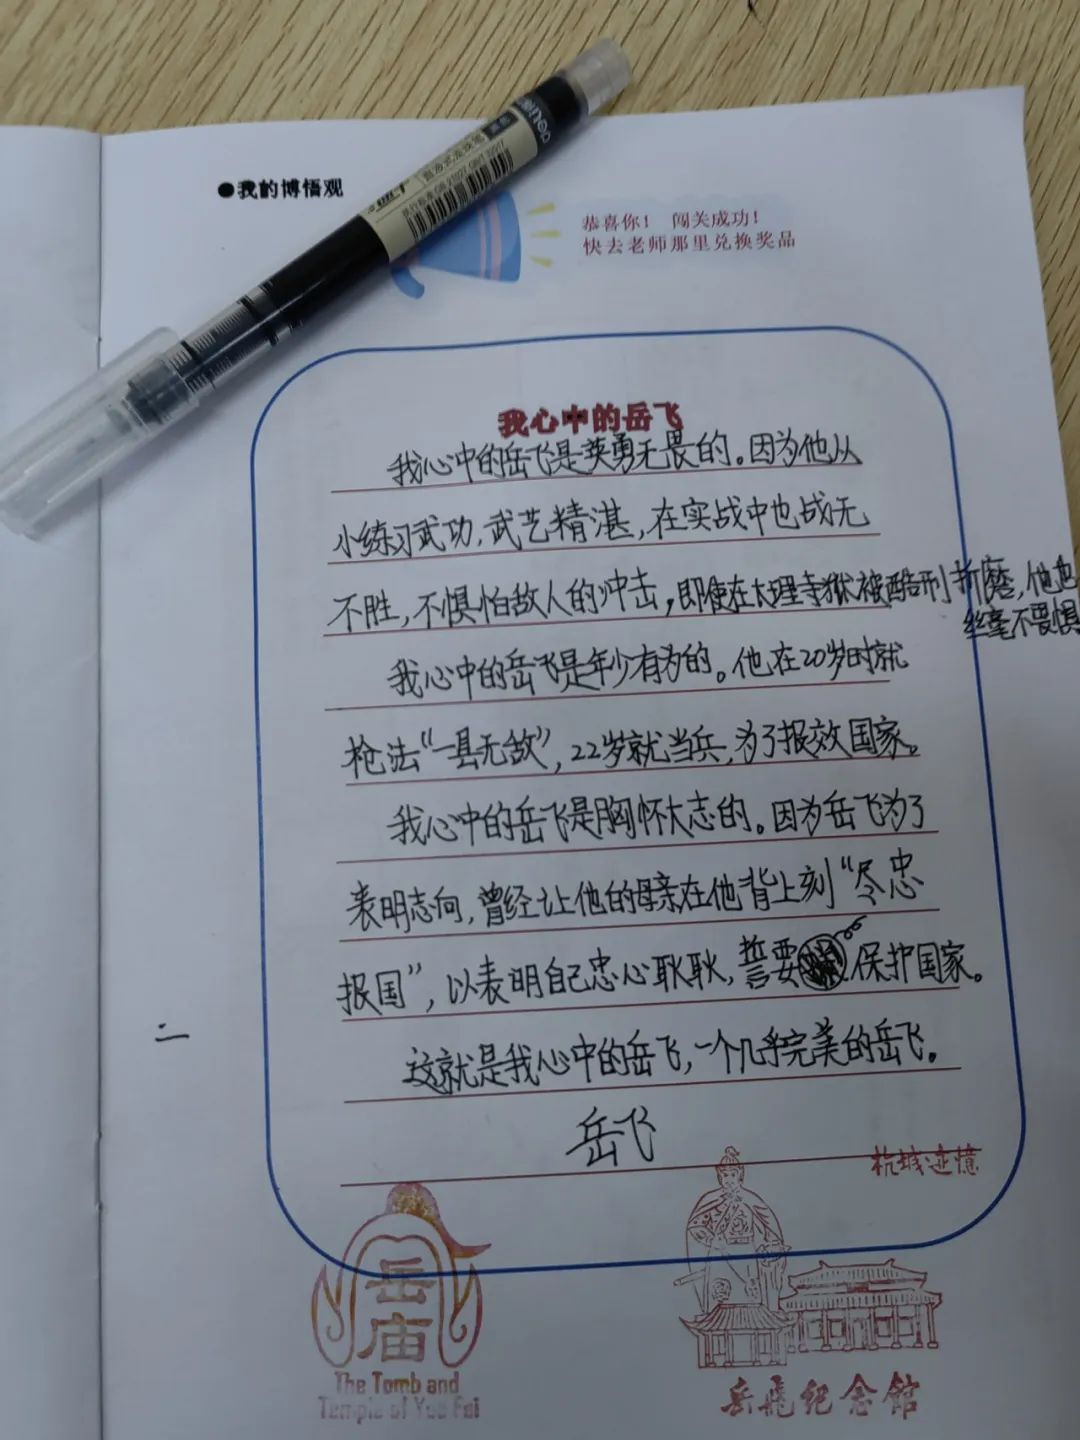 ●我的博悟观
恭喜你！ 闯关成功！
快去老师那里兑换奖品
我心中的岳飞
我心中的岳飞是英勇无畏的。因为他从
小练习武功,武艺精湛,在实战中也战无
不胜,不惧怕敌人的冲击,即使在大理寺狱被酷刑折磨,他也
丝毫不畏惧
我心中的岳飞是年少有为的。他在20岁时就
枪法“一县无敌”,22岁就当兵,为了报效国家。
我心中的岳飞是胸怀大志的。因为岳飞为了
表明志向,曾经让他的母亲在他背上刻“尽忠
报国”,以表明自己忠心耿耿,誓要保护国家。
二
这就是我心中的岳飞,一个几乎完美的岳飞。
岳飞
杭城迹忆
岳庙
The Tomb and
Temple of Yue Fei
岳飛纪念館